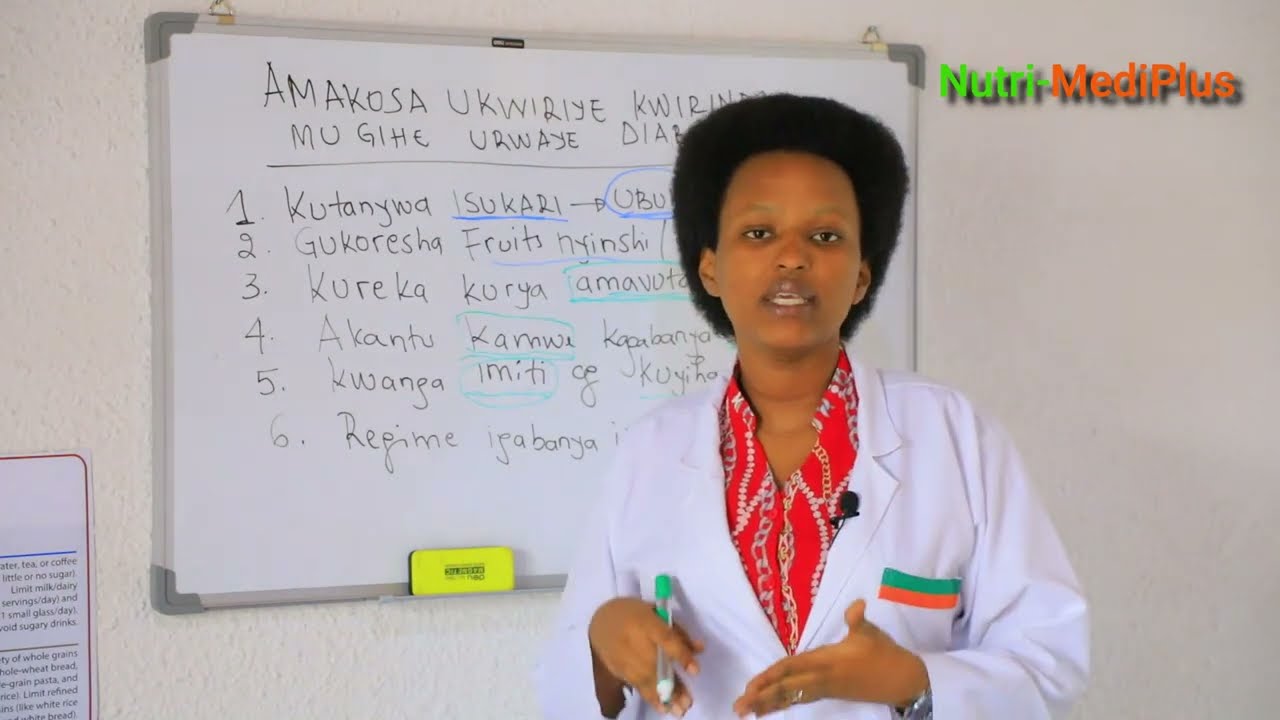 Nutri-MediPlus
AMAKOSA UKWIRIYE KWIRINDA
MU GIHE URWAYE DIAB
1. Kutanywa ISUKARI → UBU
2. Gukoresha Fruits nyinshi /
3. Kureka kurya amavuta
4. Akantu kamwe kgabanya
5. kwanga imiti cg kuyiha
6. Regime igabanya i
MAGNETIC
ater, tea, or coffee
little or no sugar).
Limit milk/dairy
servings/day) and
1 small glass/day).
void sugary drinks.
ety of whole grains
hole-wheat bread,
e-grain pasta, and
rice). Limit refined
ins (like white rice
and white bread).